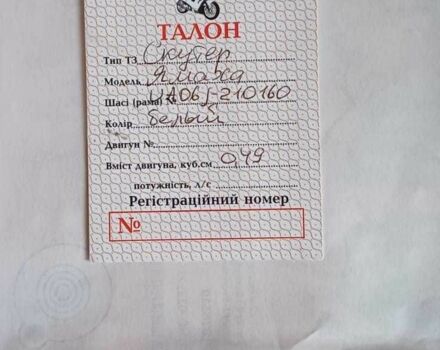 ТАЛОН
Тип ТЗ Скутер
Модель Ямаха
Шасі (рама) № UA06J-210160
Колір белый
Двигун №
Вміст двигуна, куб.см 0,49
потужність, л/с
Регістраційний номер
№